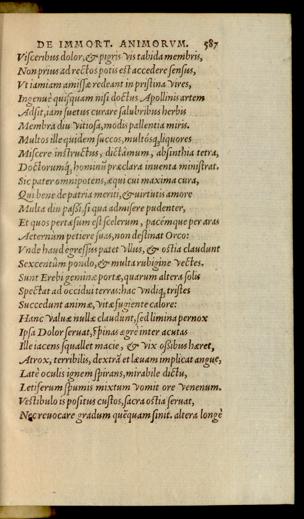 DE IMMORT. ANIMORVM. 587
Visceribus dolor, & pigris vis tabida membris,
Non prius ad rectos potis est accedere sensus,
Vt iam iam amissæ redeant in pristina vires,
Ingenuè quisquam nisi doctus Apollinis artem
Adsit, iam suetus curare salubribus herbis
Membra diu vitiosa, modis pallentia miris.
Multos ille quidem succos, multosq́ liquores
Miscere instructus, dictamum, absinthia tetra,
Doctorumq́, hominū præclara inuenta ministrat.
Sic pater omnipotens, æqui cui maxima cura,
Qui bene de patria meriti, & virtutis amore
Multa diu passi, si qua admisere pudenter,
Et quos pertæsum est scelerum, pacémque per aras
Aeternùm petiere suas, non destinat Orco:
Vnde haud egressus patet vllus, & ostia claudunt
Sexcentûm pondo, & multa rubigine vectes.
Sunt Erebi geminæ portæ, quarum altera solis
Spectat ad occidui terras: hac vndiq́, tristes
Succedunt animæ, vitæ fugiente calore:
Hanc valuæ nullæ claudunt, sed limina pernox
Ipsa Dolor seruat, spinas ægrè inter acutas
Ille iacens squallet macie, & vix ossibus hæret,
Atrox, terribilis, dextrā et læuam implicat angue,
Latè oculis ignem spirans, mirabile dictu,
Letiferum spumis mixtum vomit ore venenum.
Vestibulo is positus custos, sacra ostia seruat,
Nec reuocare gradum quēquam sinit. altera longè